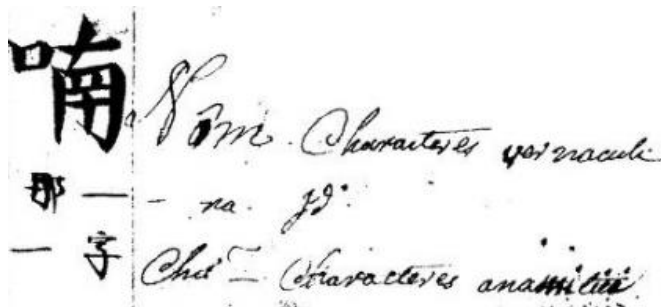 喃 Nôm. Characteres vernaculi
那 — - na. Id.
— 字 Chữ — Characteres anamitici